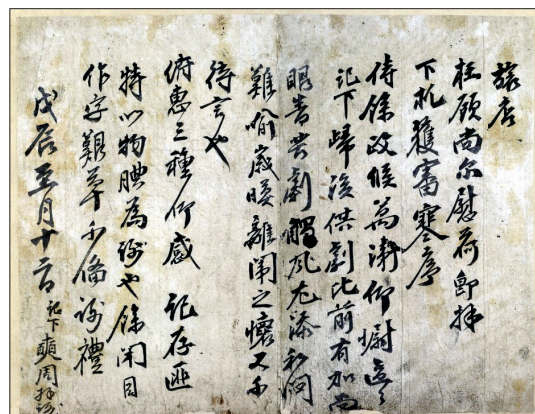 旅店
枉顧尚尔慰荷卽拜
下札獲審寒序
侍餘政候萬衛仰慰區區
記下歸後供劇比前有加尚
眼眚苦劇觸風尤添私悶
難喩歲暮離闈之懷又不
待言也
俯惠三種仰感 記存匪
特以物腆為謝也餘閉目
作字艱草不備謝禮
戊辰至月十二日 記下 周拜謝